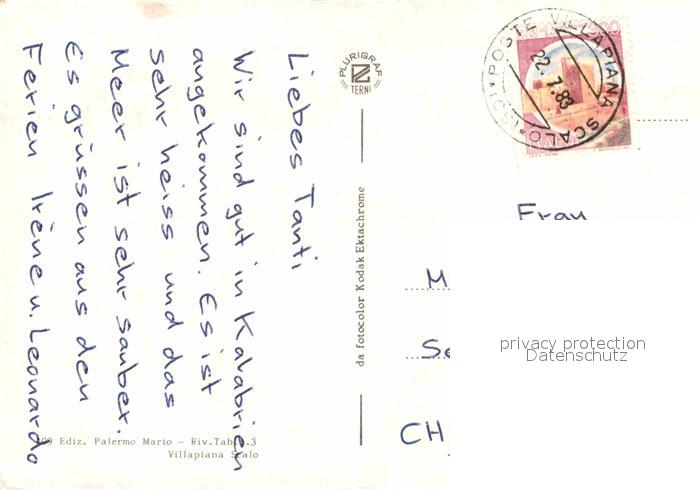 Liebes Tanti
Wir sind gut in Kalabrien
angekommen. Es ist
sehr heiss und das
Meer ist sehr sauber.
Es grüssen aus den
Ferien Irène u. Leonardo
PLURIGRAF
TERNI
da fotocolor Kodak Ektachrome
Ediz. Palermo Mario - Riv.Tab. .3
Villapiana Scalo
POSTE VILLAPIANA SCALO (CS)
22.7.83
Frau
M
Se
CH
privacy protection
Datenschutz